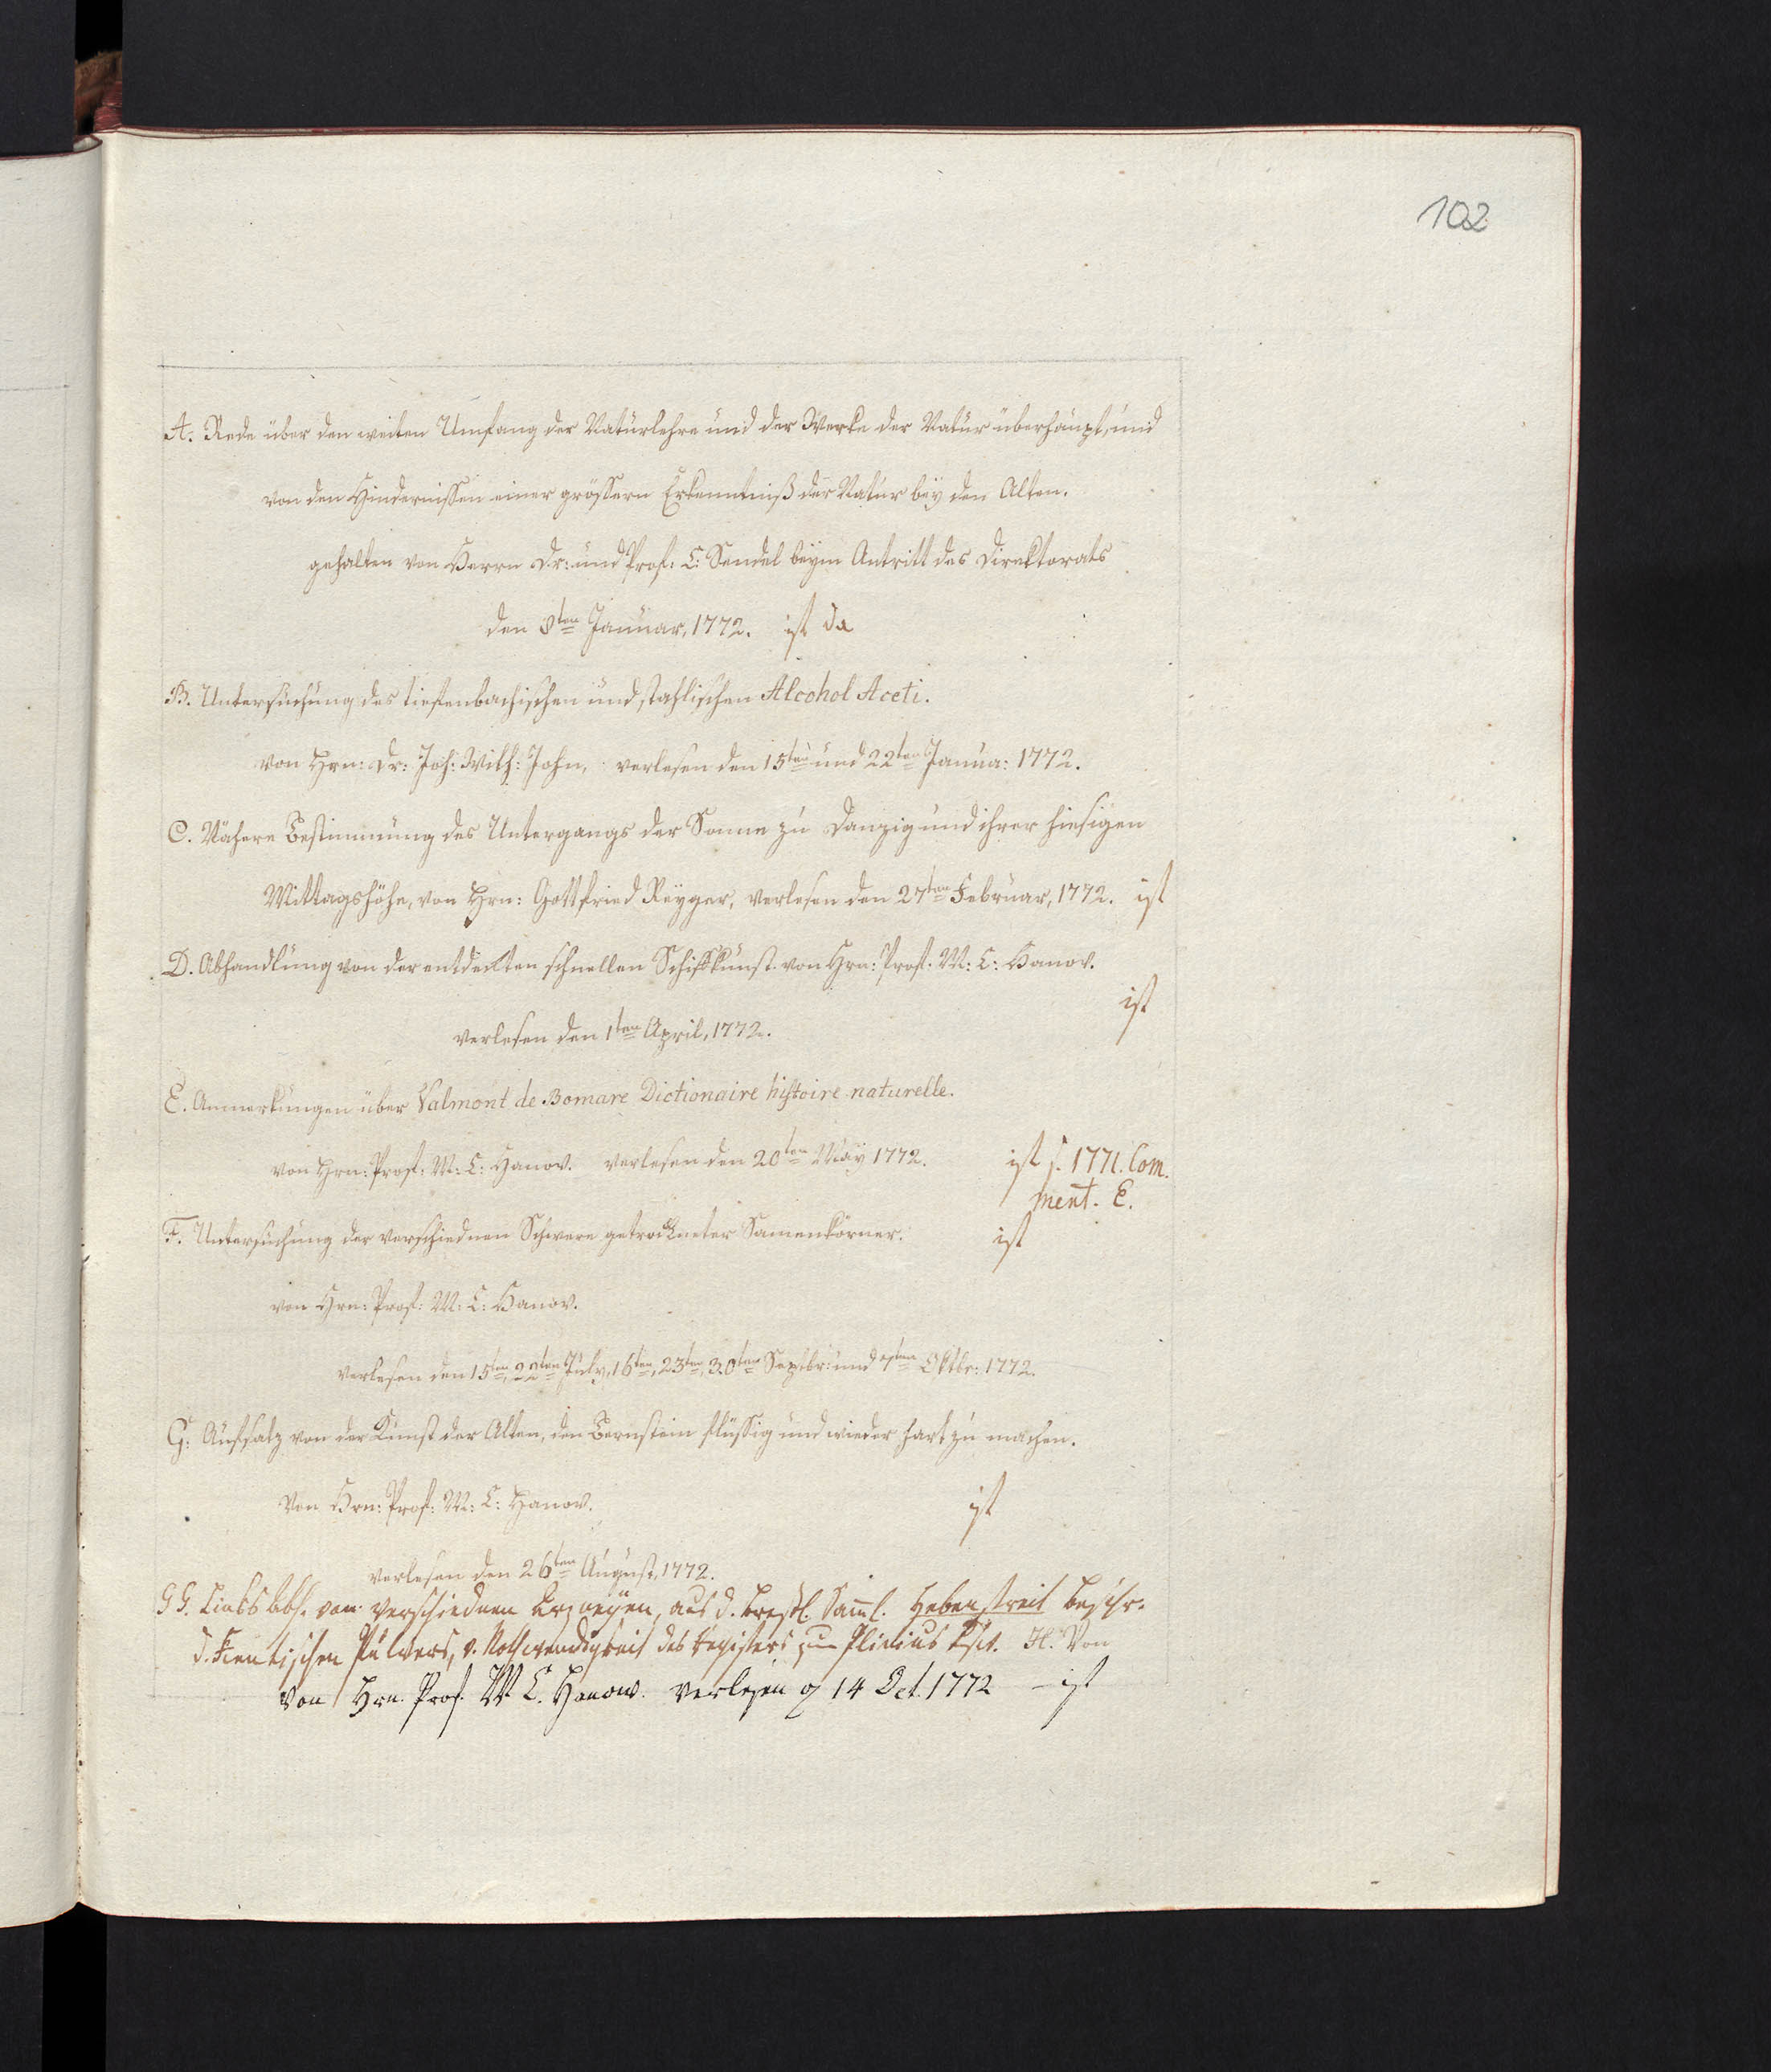 102
A. Rede über den weiten Umfang der Naturlehre und der Werke der Natur überhaupt, und
von den Hindernissen einer grössern Erkenntniß der Natur bey den Alten.
gehalten von Herrn Dr: und Prof: C: Sendel beym Antritt des Direktorats
den 8ten Januar, 1772. ist da
B. Untersuchung des tiefenbachischen und stahlischen Alcohol Aceti.
von Hrn: Dr: Joh: Wilh: John, verlesen den 15ten und 22ten Janua: 1772.
C. Nähere Bestimmung des Untergangs der Sonne zu Danzig und ihrer hiesigen
Mittagshöhe, von Hrn: Gottfried Reyger, verlesen den 27ten Februar, 1772. ist
D. Abhandlung von der entdeckten schnellen Schifkunst von Hrn: Prof. M: C: Hanov.
ist
verlesen den 1ten April, 1772.
E. Anmerkungen über Valmont de Bomare Dictionaire histoire naturelle.
von Hrn: Prof: M: C: Hanov. verlesen den 20ten May 1772. ist s. 1771. Com.
ment. E.
F. Untersuchung der verschiednen Schwere getrockneter Samenkörner. ist
von Hrn: Prof: M: C: Hanov.
verlesen den 15ten, 22ten July, 16ten, 23ten, 30ten Septbr: und 7ten Oktbr: 1772.
G. Aufsatz von der Kunst der Alten, den Bernstein flüssig und wieder hart zu machen.
Von Hrn: Prof: M: C: Hanov. ist
verlesen den 26ten August, 1772.
GG. Abh. von verschiednen Arzneyen, aus d. Bresl. Samml. Hebenstreit Beschr.
d. Pulvers, v. Nothwendigkeit des Registers zum Plinius H. Von
Von Hrn. Prof. M C. Hanow. verlesen 14 Oct. 1772 – ist